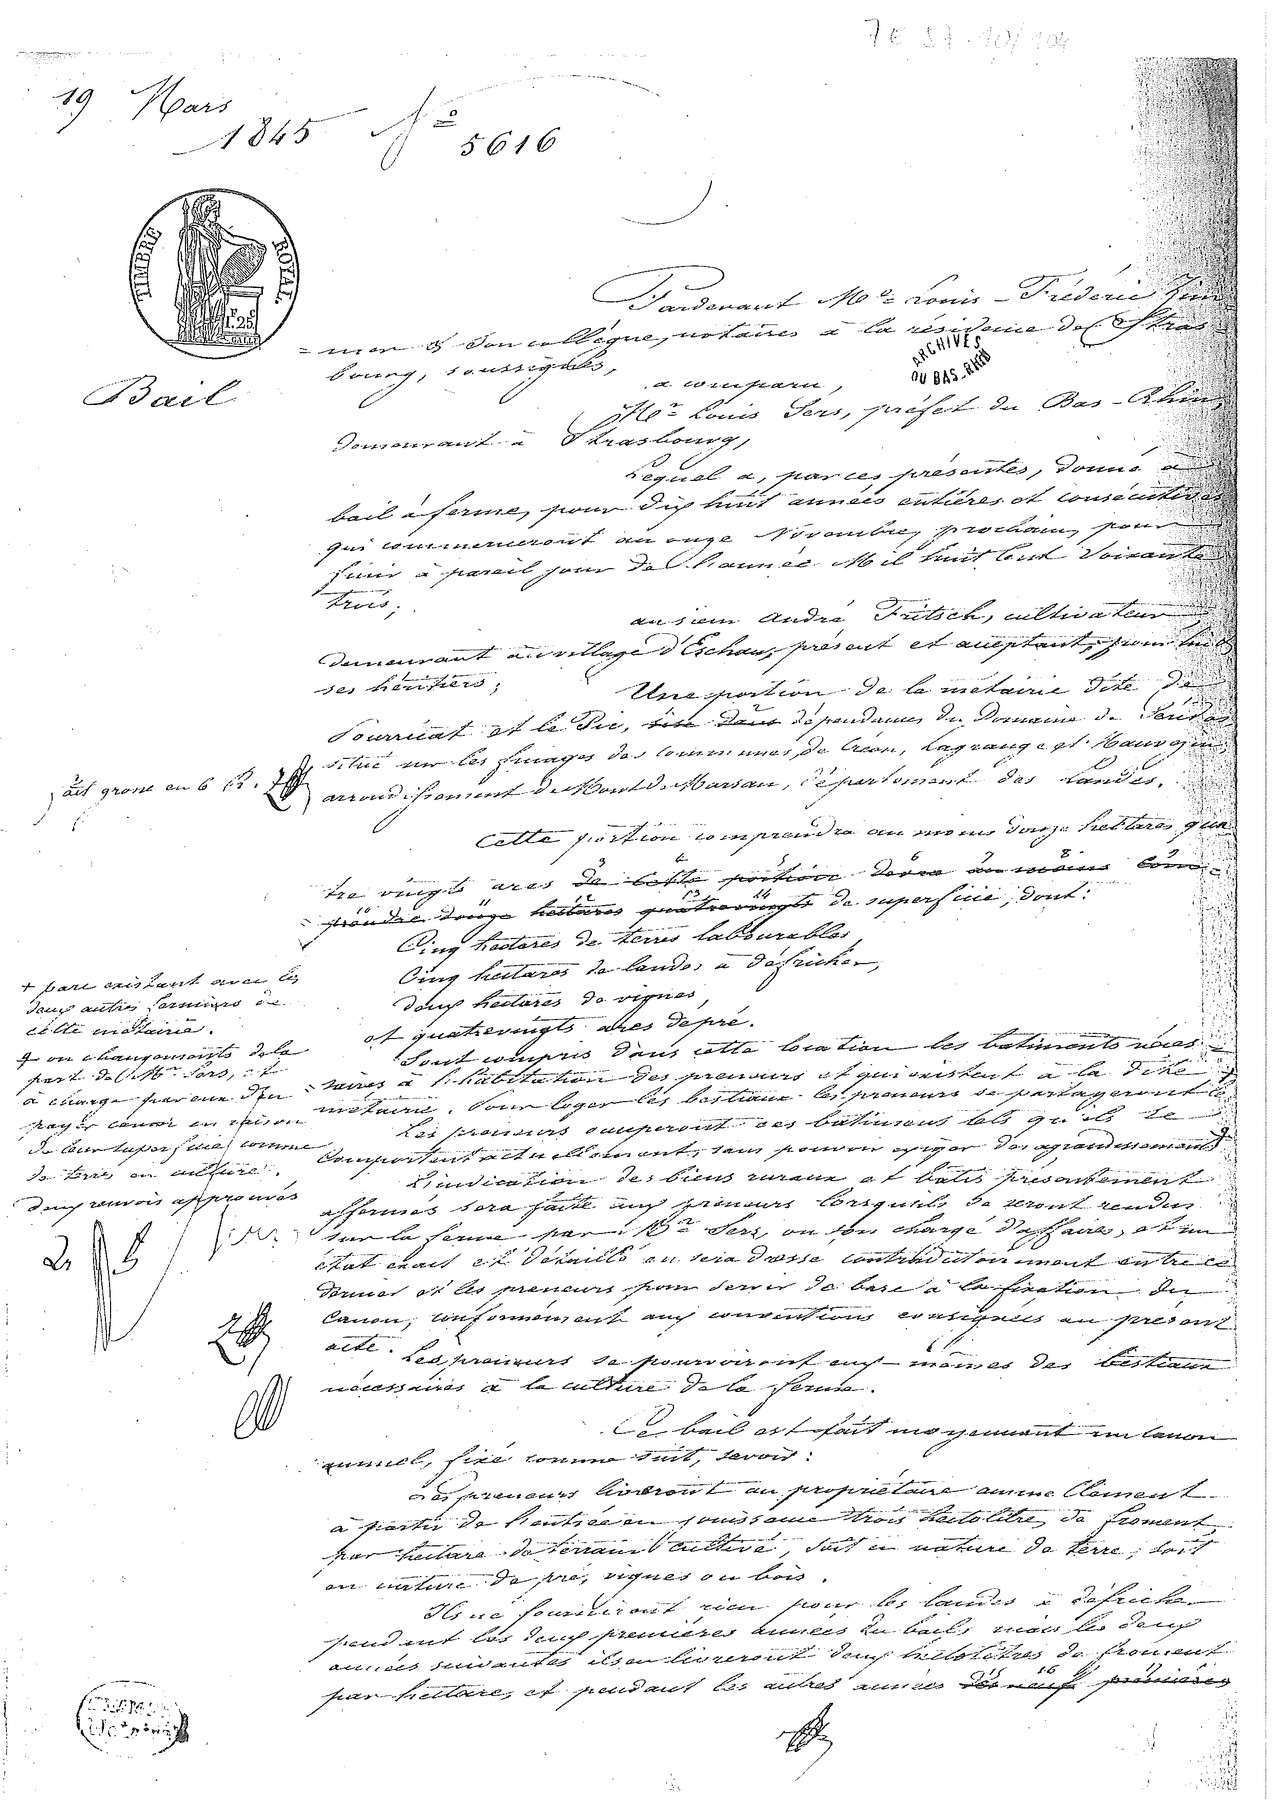 7 E 57.10/104
19 Mars
1845 No
5616
TIMBRE ROYAL
Bail
Pardevant Me Louis-Fréderic Zim
=mer & son collègue, notaires à la résidence de Stras
bourg, soussignés,
ARCHIVES
DU BAS-RHIN
a comparu,
Mr Louis Sers, préfet du Bas-Rhin,
demeurant à Strasbourg,
Lequel a, par ces présentes, donné à
bail à ferme, pour dix huit années entières et consécutives
qui commenceront au onze Novembre prochain, pour
finir à pareil jour de l'année Mil huit Cent Soixante
trois,
au sieur André Fritsch, cultivateur
demeurant au village d'Eschau, présent et acceptant, pour lui &
ses héritiers,
Une portion de la métairie dite de
et le Pic, sise dans dépendances du Domaine de
situé sur les finages des communes de Créon, Lagrange et Mauvezin,
arrondissement de Mont de Marsan, département des Landes.
Cette portion comprendra au moins douze hectares qua
tre vingts ares de cette portion devra au moins com
=prendre douze hectares quatrevingts de superficie, dont:
Cinq hectares de terres labourables,
Cinq hectares de landes à défricher,
deux hectares de vignes,
et quatrevingts ares de pré.
Sont compris dans cette location les batiments néces
=saires à l'habitation des preneurs et qui existent à la dite
métairie. Pour loger les bestiaux les preneurs se partageront le
+ parc existant avec les
deux autres fermiers de
cette métairie.
+ ou changements de la
part de Mr Sers, et
à charge par eux d'en
payer canon en raison
de leur superficie, comme
de terres en culture.
deux renvois approuvés
Les preneurs occuperont ces bâtimens tels qu'ils se
comportent actuellement, sans pouvoir exiger des agrandissements
L'indication des biens ruraux et batis présentement
affermés sera faite aux preneurs lorsqu'ils se seront rendus
sur la ferme par Mr Sers, ou son chargé d'affaires, et un
état exact et détaillé en sera dressé contradictoirement entre ce
dernier et les preneurs pour servir de base à la fixation du
Canon, conformément aux conventions consignées au présent
acte.
Les preneurs se pourvoiront eux-mêmes des bestiaux
nécessaires à la culture de la ferme.
Ce bail est fait moyennant un canon
annuel, fixé comme suit, savoir:
Les preneurs livreront au propriétaire annuellement
à partir de l'entrée en jouissance trois hectolitres de froment
par hectare de terrain cultivé, soit en nature de terre, soit
en nature de pré, vignes ou bois.
Ils ne fourniront rien pour les landes à défricher
pendant les deux premières années du bail, mais les deux
années suivantes ils en livreront deux hectolitres de froment
par hectare, et pendant les autres années des neuf premières